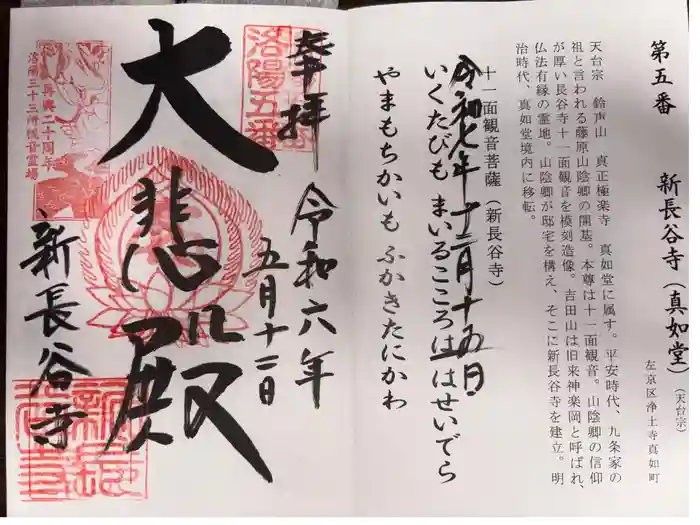 第五番　新長谷寺（真如堂）（天台宗）
左京区浄土寺真如町
天台宗　鈴声山　真正極楽寺　真如堂に属す。平安時代、九条家の
祖と言われる藤原山陰卿の開基。本尊は十一面観音。山陰卿の信仰
が厚い長谷寺十一面観音を模刻造像。吉田山は旧来神楽岡と呼ばれ、
仏法有縁の霊地。山陰卿が邸宅を構え、そこに新長谷寺を建立。明
治時代、真如堂境内に移転。
十一面観音菩薩（新長谷寺）
令和七年十二月十五日
いくたびも　まいるこころは　はせいでら
やまもちかいも　ふかきたにかわ
奉拝
洛陽五番
令和六年
五月十二日
大悲殿
新長谷寺
再興二十周年
洛陽三十三所観音霊場